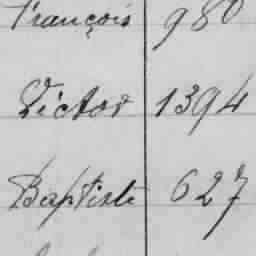 François 980
Victor 1394
Baptiste 627